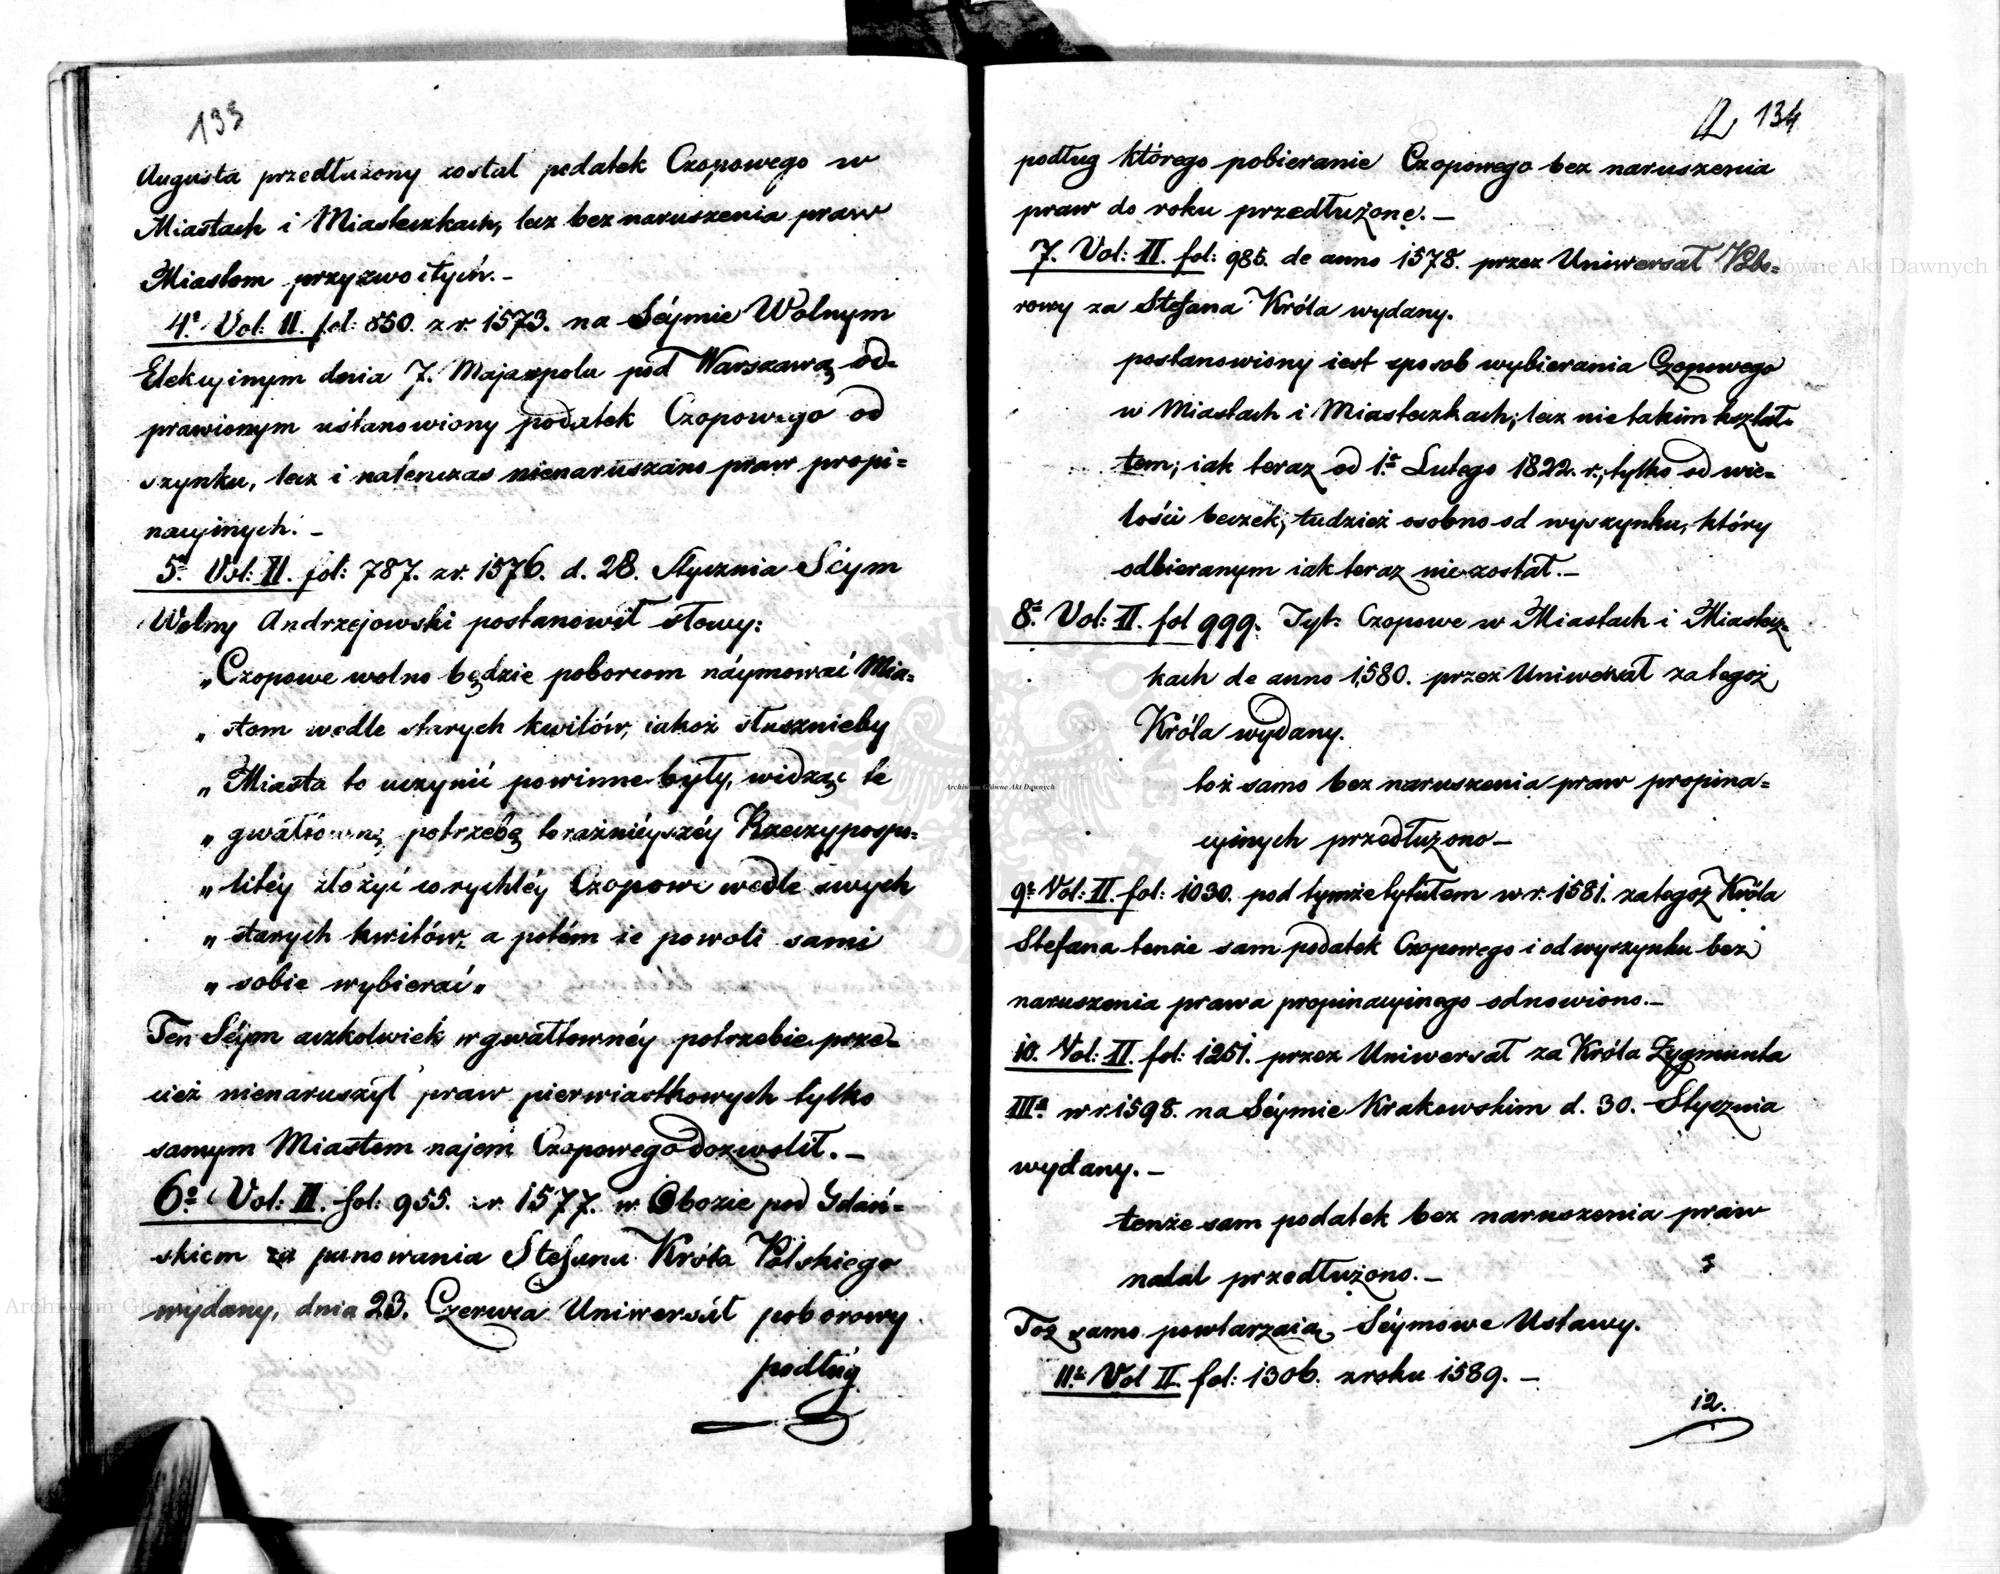 133
Augusta przedłużony został podatek Czopowego w
Miastach i Miasteczkach, lecz bez naruszenia praw
Miastom przyzwoitych. –
4º Vol: II. fol: 850. z r. 1573. na Séymie Wolnym
Elekcyinym dnia 7. Maja spolu pod Warszawą od=
prawionym ustanowiony podatek Czopowego od
szynku, lecz i natenczas nienaruszano praw propi=
nacyinych. –
5º Vol: II. fol: 787. z r. 1576. d. 28. Stycznia Séym
Wolny Andrzejowski postanowił słowy:
„ Czopowe wolno będzie poborcom náymowaí Mia=
„ stom wedle starych kwitów, iakoż słusznieby
„ Miasta to uczynić powinne były, widząc te
„ gwałtowną potrzebę teraźniéyszéy Rzeczypospo=
„ litéy złożyć co rychléy Czopowe wedle swych
„ starych kwitów, a potém ie powoli sami
„ sobie wybieraí „
Ten Séym aczkolwiek w gwałtownéy potrzebie prze=
cież nienaruszył praw pierwiastkowych tylko
samym Miastom najem Czopowego dozwolił. –
6º Vol: II. fol: 955. z r. 1577. w Obozie pod Gdań=
skiem za panowania Stefana Króla Polskiego
wydany, dnia 23. Czerwca Uniwersał poborowy
podług
134
podług którego pobieranie Czopowego bez naruszenia
praw do roku przedłużone. –
7. Vol: II. fol: 985. de anno 1578. przez Uniwersał Pobo=
rowy za Stefana Króla wydany.
postanowiony iest sposob wybierania Czopowego
w Miastach i Miasteczkach; lecz nie takim kształ=
tem; iak teraz od 1º Lutego 1822. r.; tylko od wie=
lości beczek, tudzież osobno od wyszynku, który
odbieranym iak teraz nie został. –
8º Vol: II. fol 999. Tyt: Czopowe w Miastach i Miastecz=
kach de anno 1580. przez Uniwersał za tegoż
Króla wydany.
toż samo bez naruszenia praw propina=
cyinych przedłużono –
9º Vol: II. fol: 1030. pod tymże tytułem w r. 1581. za tegoż Króla
Stefana tenże sam podatek Czopowego i od wyszynku bez
naruszenia prawa propinacyinego odnowiono. –
10. Vol: II. fol: 1251. przez Uniwersał za Króla Zygmunta
IIIº w r. 1598. na Séymie Krakowskim d. 30. Stycznia
wydany. –
tenże sam podatek bez naruszenia praw
nadal przedłużono. –
Toż samo powtarzaią Séymowe Ustawy.
11º Vol II. fol: 1306. z roku 1589. –
12.
Archiwum Główne Akt Dawnych